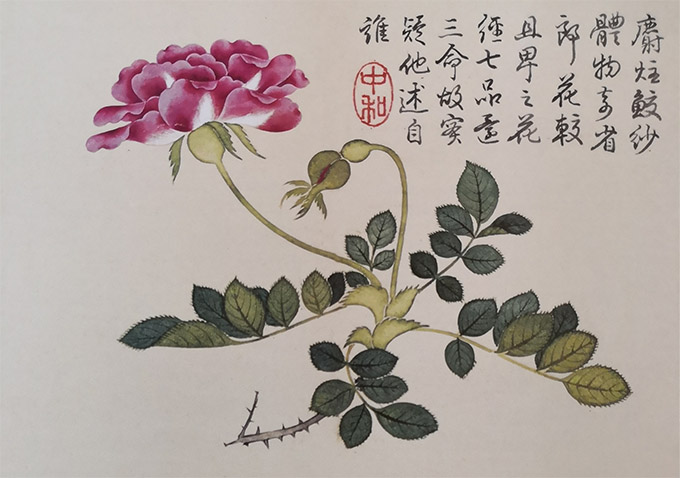 麝炷鮫紗
體物奇省
郎花較
且卑之花
經七品還
三命故實
疑他述自
誰
中和